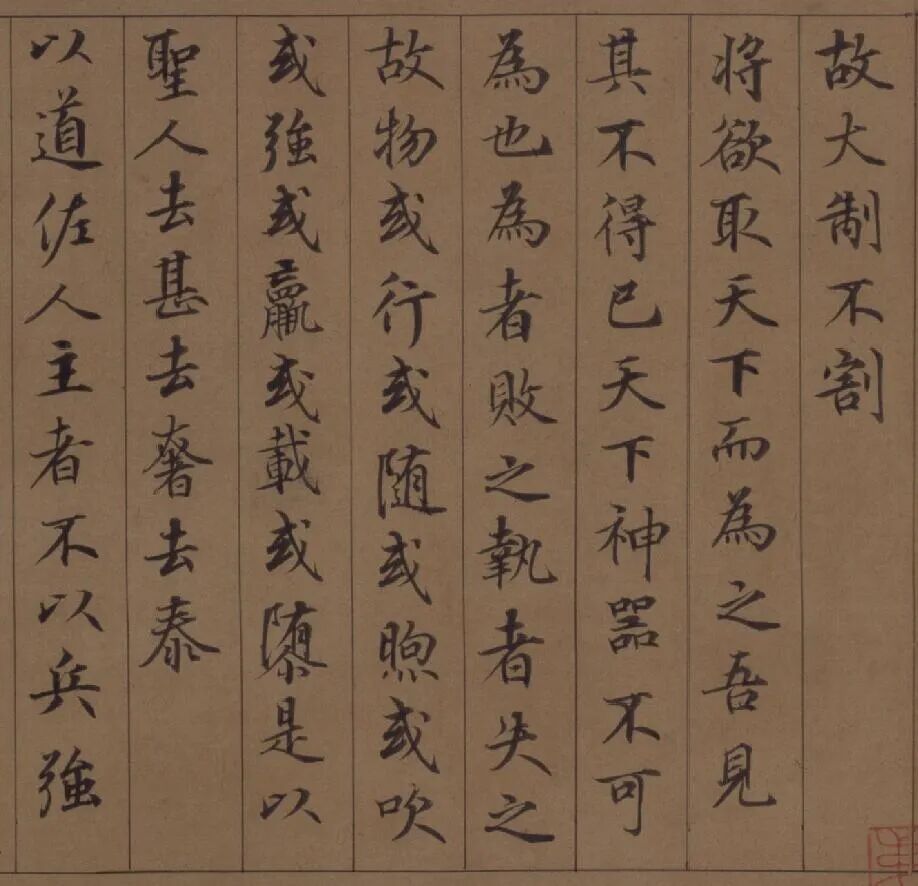 故大制不割
将欲取天下而為之吾見
其不得已天下神器不可
為也為者敗之執者失之
故物或行或随或喣或吹
或強或羸或載或隳是以
聖人去甚去奢去泰
以道佐人主者不以兵強